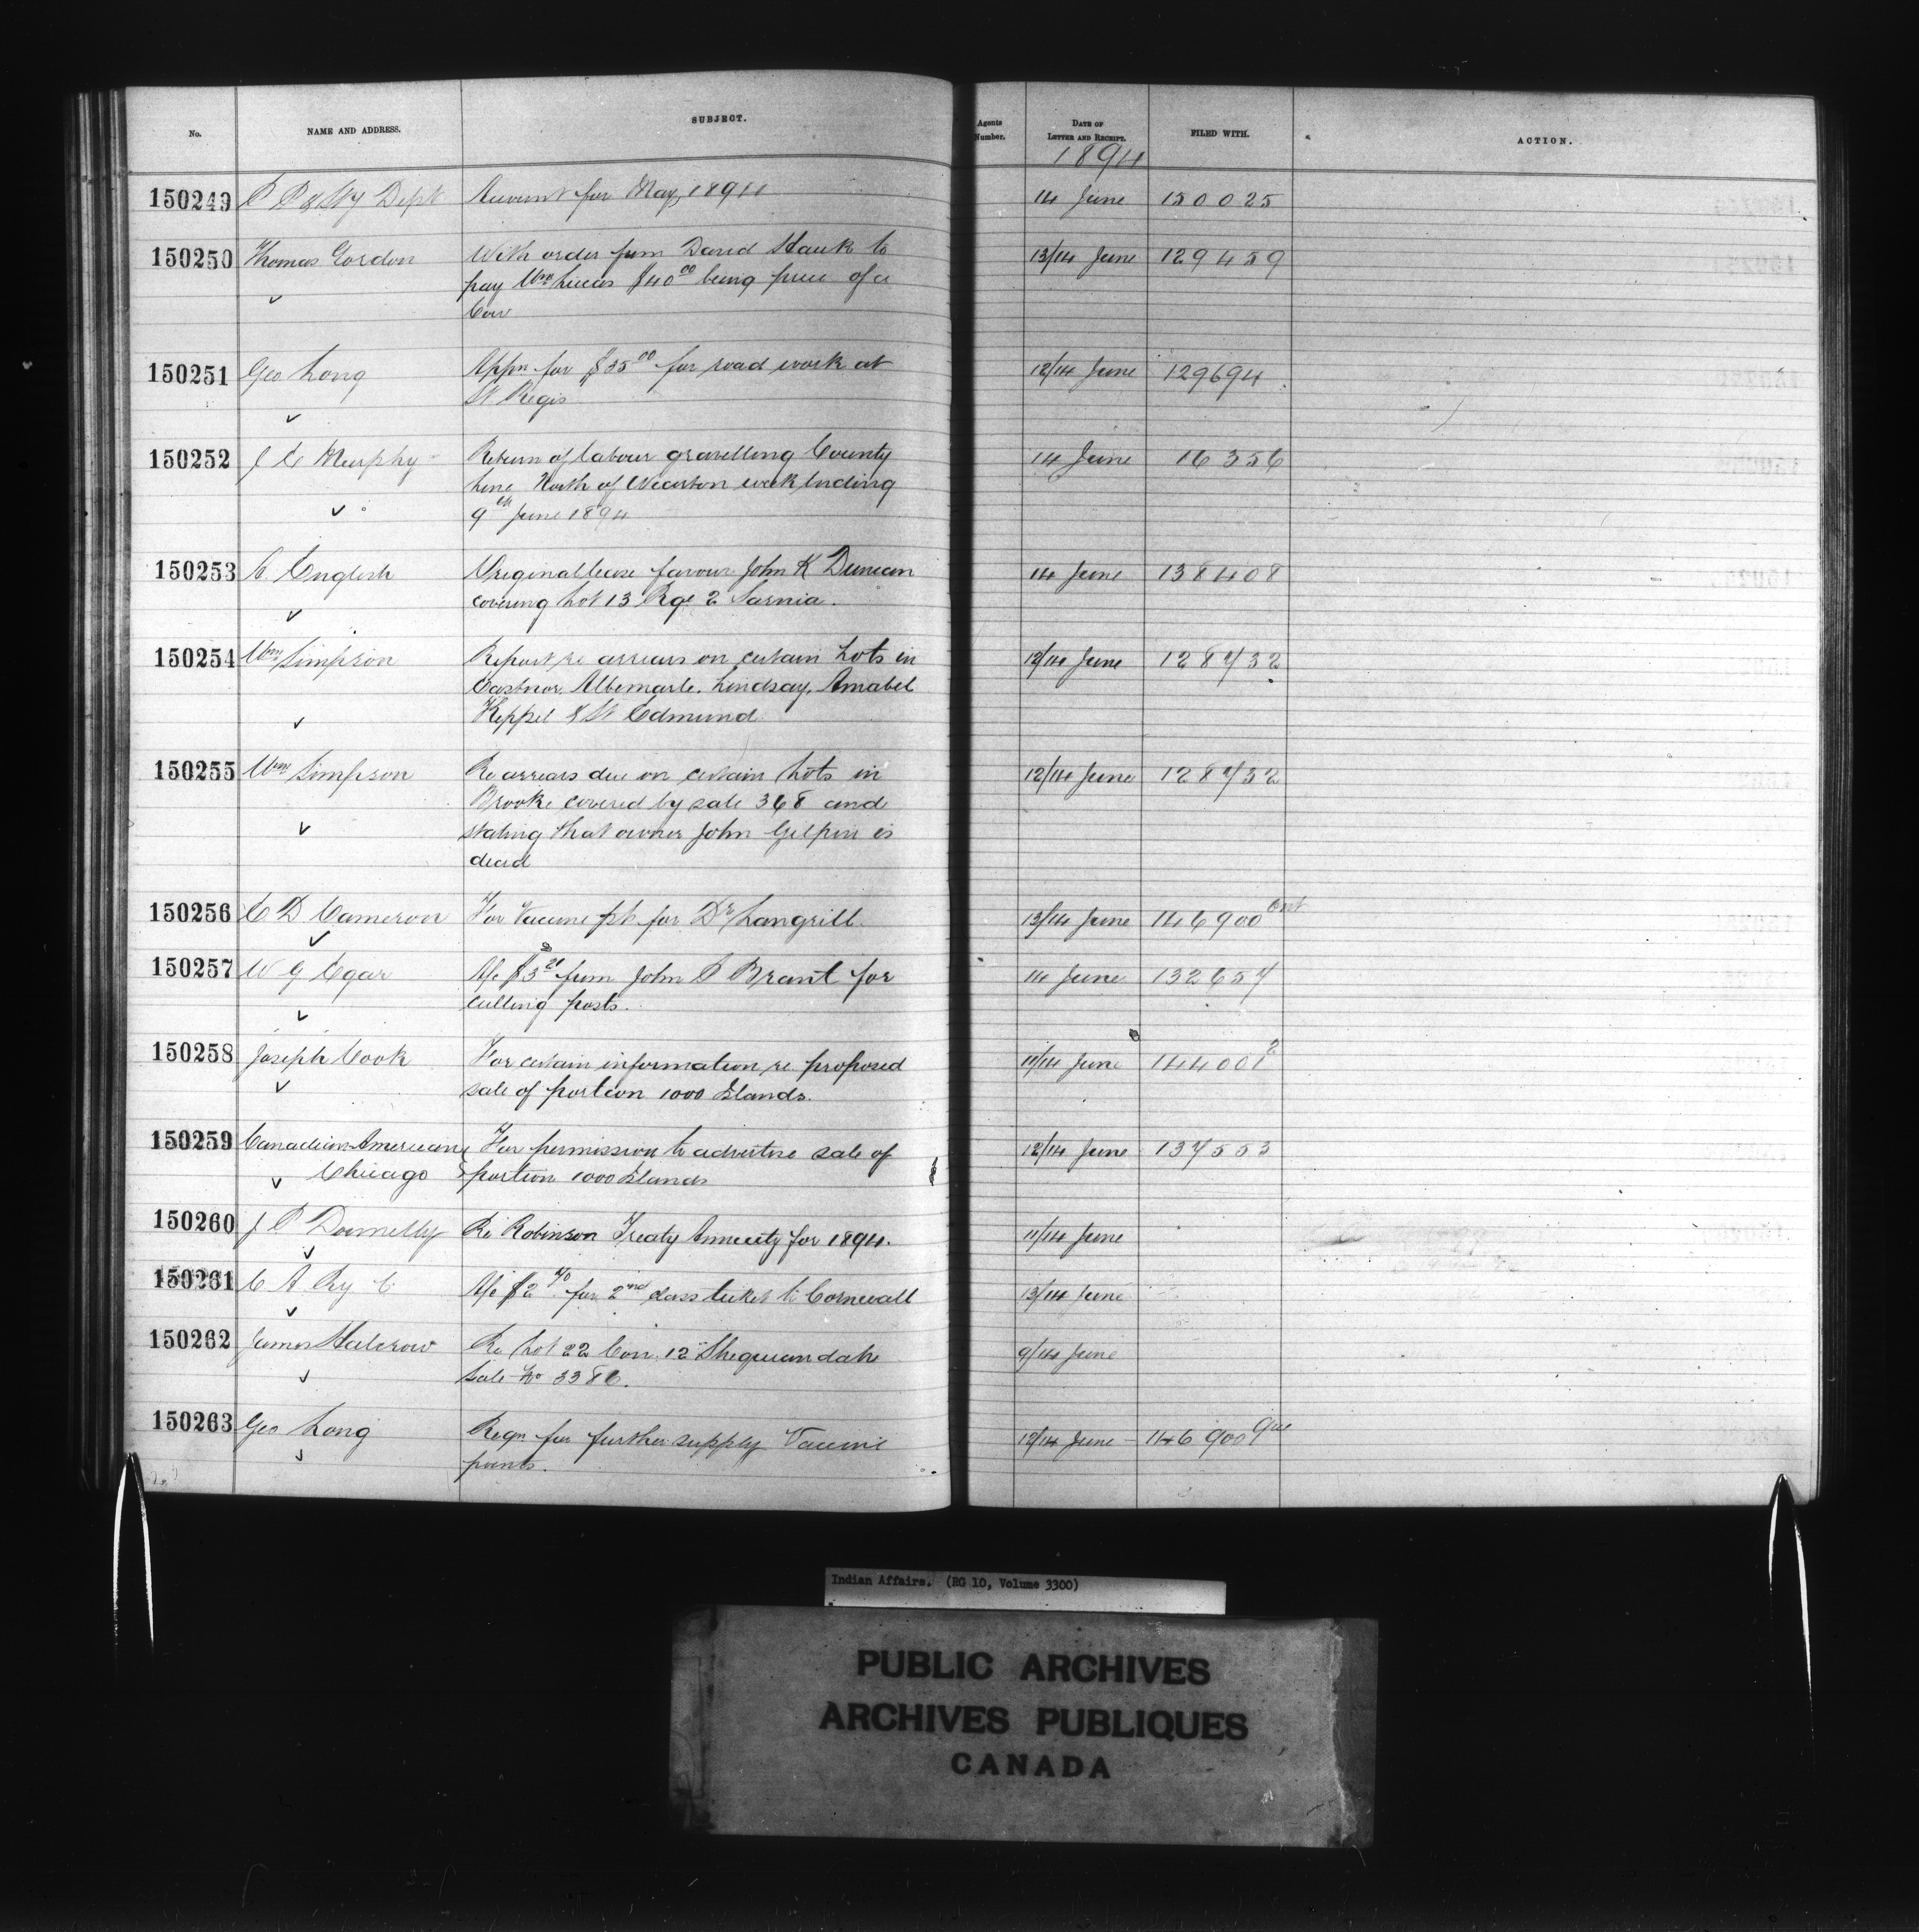 No. NAME AND ADDRESS. SUBJECT. Agents Number. DATE OF LETTER AND RECEIPT. FILED WITH. ACTION.
1894
150249 P P & Sty Dept Account for May, 1894 14 June 150025
150250 Thomas Gordon With order from David Hauk to 13/14 June 129459
pay Wm Lucas $40 00 being price of a
Cow
150251 Geo Long Appn for $35 00 for road work at 12/14 June 129694
St Regis
150252 J C Murphy Return of labour gravelling County 14 June 16356
Line North of Wiarton week ending
9th June 1894
150253 A. English Original lease favour John K Duncan 14 June 138408
covering Lot 13 Rge 2 Sarnia.
150254 Wm Simpson Report re arrears on certain Lots in 12/14 June 128732
Eastnor, Albemarle, Lindsay, Amabel
Keppel & St Edmund
150255 Wm Simpson Re arrears due on certain Lots in 12/14 June 128732
Brooke covered by sale 368 and
stating that owner John Gilpin is
dead
150256 C D Cameron For Vaccine pts for Dr Langrill 13/14 June 146900 Ont
150257 W G Egar A/c $3 21 from John P Brant for 14 June 132657
culling posts.
150258 Joseph Cook For certain information re proposed 11/14 June 144001 2
sale of portion 1000 Islands.
150259 Canadian American For permission to advertise sale of 12/14 June 137553
Chicago portion 1000 Islands
150260 J P Donnelly Re Robinson Treaty Annuity for 1894. 11/14 June
150261 C A Ry C A/c $2 70 for 2nd class ticket to Cornwall 13/14 June
150262 James Halcrow Re Lot 22 Con. 12 Sheguiandah 9/14 June
Sale No 3386.
150263 Geo Long Reqn for further supply Vaccine 12/14 June 146900 Que
points.
Indian Affairs. (RG 10, Volume 3300)
PUBLIC ARCHIVES
ARCHIVES PUBLIQUES
CANADA